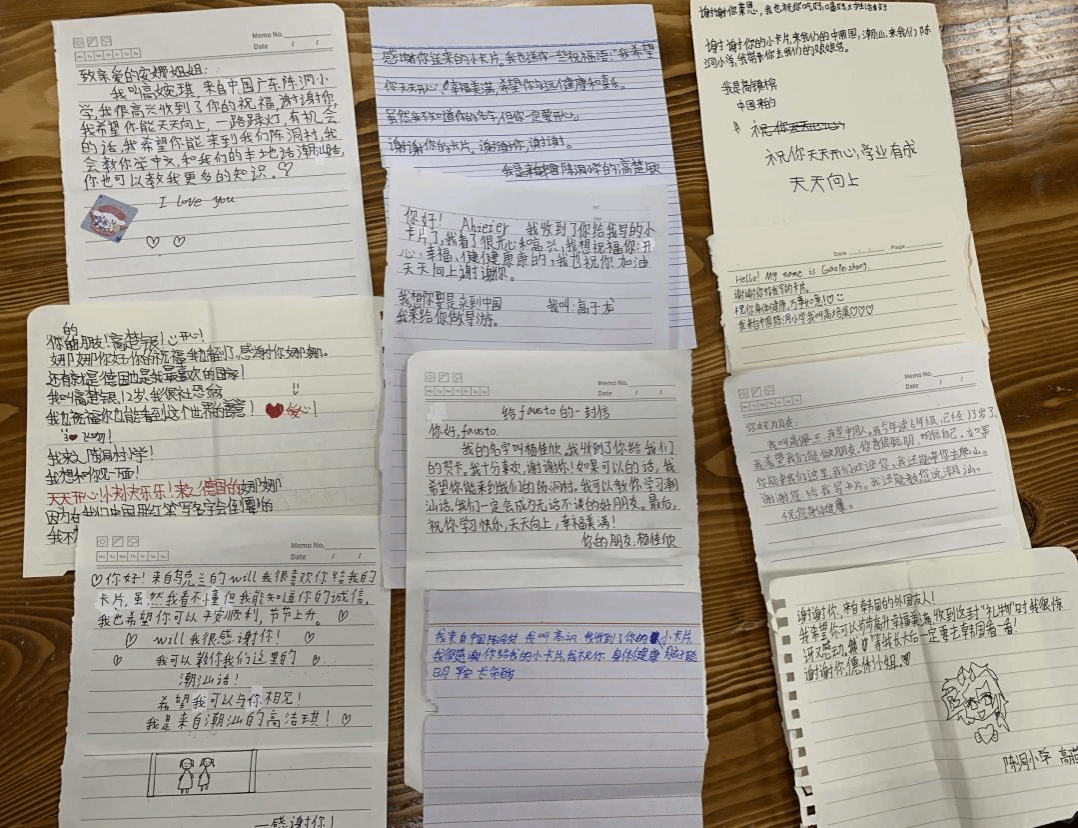 Memo No.
Date / /
致亲爱的安娜姐姐:
我叫高婉琪,来自中国广东陈洞小
学,我很高兴收到了你的祝福,谢谢你
我希望你能天天向上,一路踩灯,有机会
的话,我希望你能来到我们陈洞村,我
会教你学中文,和我们的本地话潮汕话,
你也可以教我更多的知识。♡
I love you
的
你的朋友!高楚银!开心!
娜娜你好你的祝福我也看到了,感谢你娜娜。
还有就是德国也是我最喜欢的国家!
我叫高楚银,12岁,我很社恐
我也祝福你也能看到这个世界的
我来入陈洞村小学!
我想和你见一面!
天天开心!快快乐乐!来之德国的娜娜
因为在我们中国用红笔写名字会
我不
Memo No.
Mo Tu We Th Fr Sa Su
Date / /
♡你好!来自乌克兰的will我很喜欢你给我的
卡片,虽然我看不懂但我能知道你的诚信,
我也希望你可以平安顺利,节节上升。♡
♡ will我很感谢你! ♡
♡ 我可以教你我们这里的 ♡
潮汕话!
希望我可以与你相见!
我是来自潮汕的高洁琪! ♡
一感谢你!
感谢你送来的小卡片。我也送你一些祝福语:"我希望
你天天开心,幸福美满,希望你永远健康和喜乐。
虽然我不知道你的名字,但你一定要开心。
谢谢你的卡片。谢谢你,谢谢。
我是来自中国陈洞小学的:高楚欣
你好! Abiezer 我收到了你给我写的小
卡片了,我看了很开心和高兴,我想祝福你:开
心、幸福、健健康康的,我也祝你加油
天天向上谢谢你。
我想你要是来到中国 我叫:高于龙
我来给你做导游。
Memo No.
Mo Tu We Th Fr Sa Su
Date / /
给fausto的一封信
你好,fausto.
我的名字叫杨佳欣,我收到了你给我们
的贺卡。我十分喜欢,谢谢你!如果可以的话,我
希望你能来到我们的陈洞村。我可以教你学习潮
汕话,我们一定会成为无话不谈的好朋友。最后,
祝你学习快乐,天天向上,幸福美满!
你的朋友:杨佳欣
我来自中国陈洞村 我叫高 我收到了你的小卡片
我很感谢你给我的小卡片,我祝你 身体健康
谢谢你莱恩,我也祝你吃好喝好,大学生活美好
谢谢你的小卡片,来我们的中国,潮汕,来我们陈
洞小学,我带你去我们的
我是高镇槟
中国来的
祝你天天开心
祝你天天开心,学业有成
天天向上
Date : Page
Hello! My name is Gaopeizhang.
谢谢你给我写的卡片。
祝你身体健康,万事如意!♡
我来自中国陈洞小学我叫高培展♡♡♡
Memo No.
Date / /
你好朋友:
我叫高 ,我是中国人。我今年读6年级,已经13岁了。
我希望我们能做朋友,你要很聪明,相信自己。如果
你能来我们这里,我们欢迎你,我还能带你去爬山。
谢谢您给我写卡片。我还能教您说潮汕。
祝您身体健康。
谢谢你,来自韩国的外国友人!
我希望你可以步步高升幸福美满,收到这封"礼物"时我很惊
讶又感动,等我长大后一定要去韩国看一看!
谢谢你, 小姐。♡
陈洞小学 高